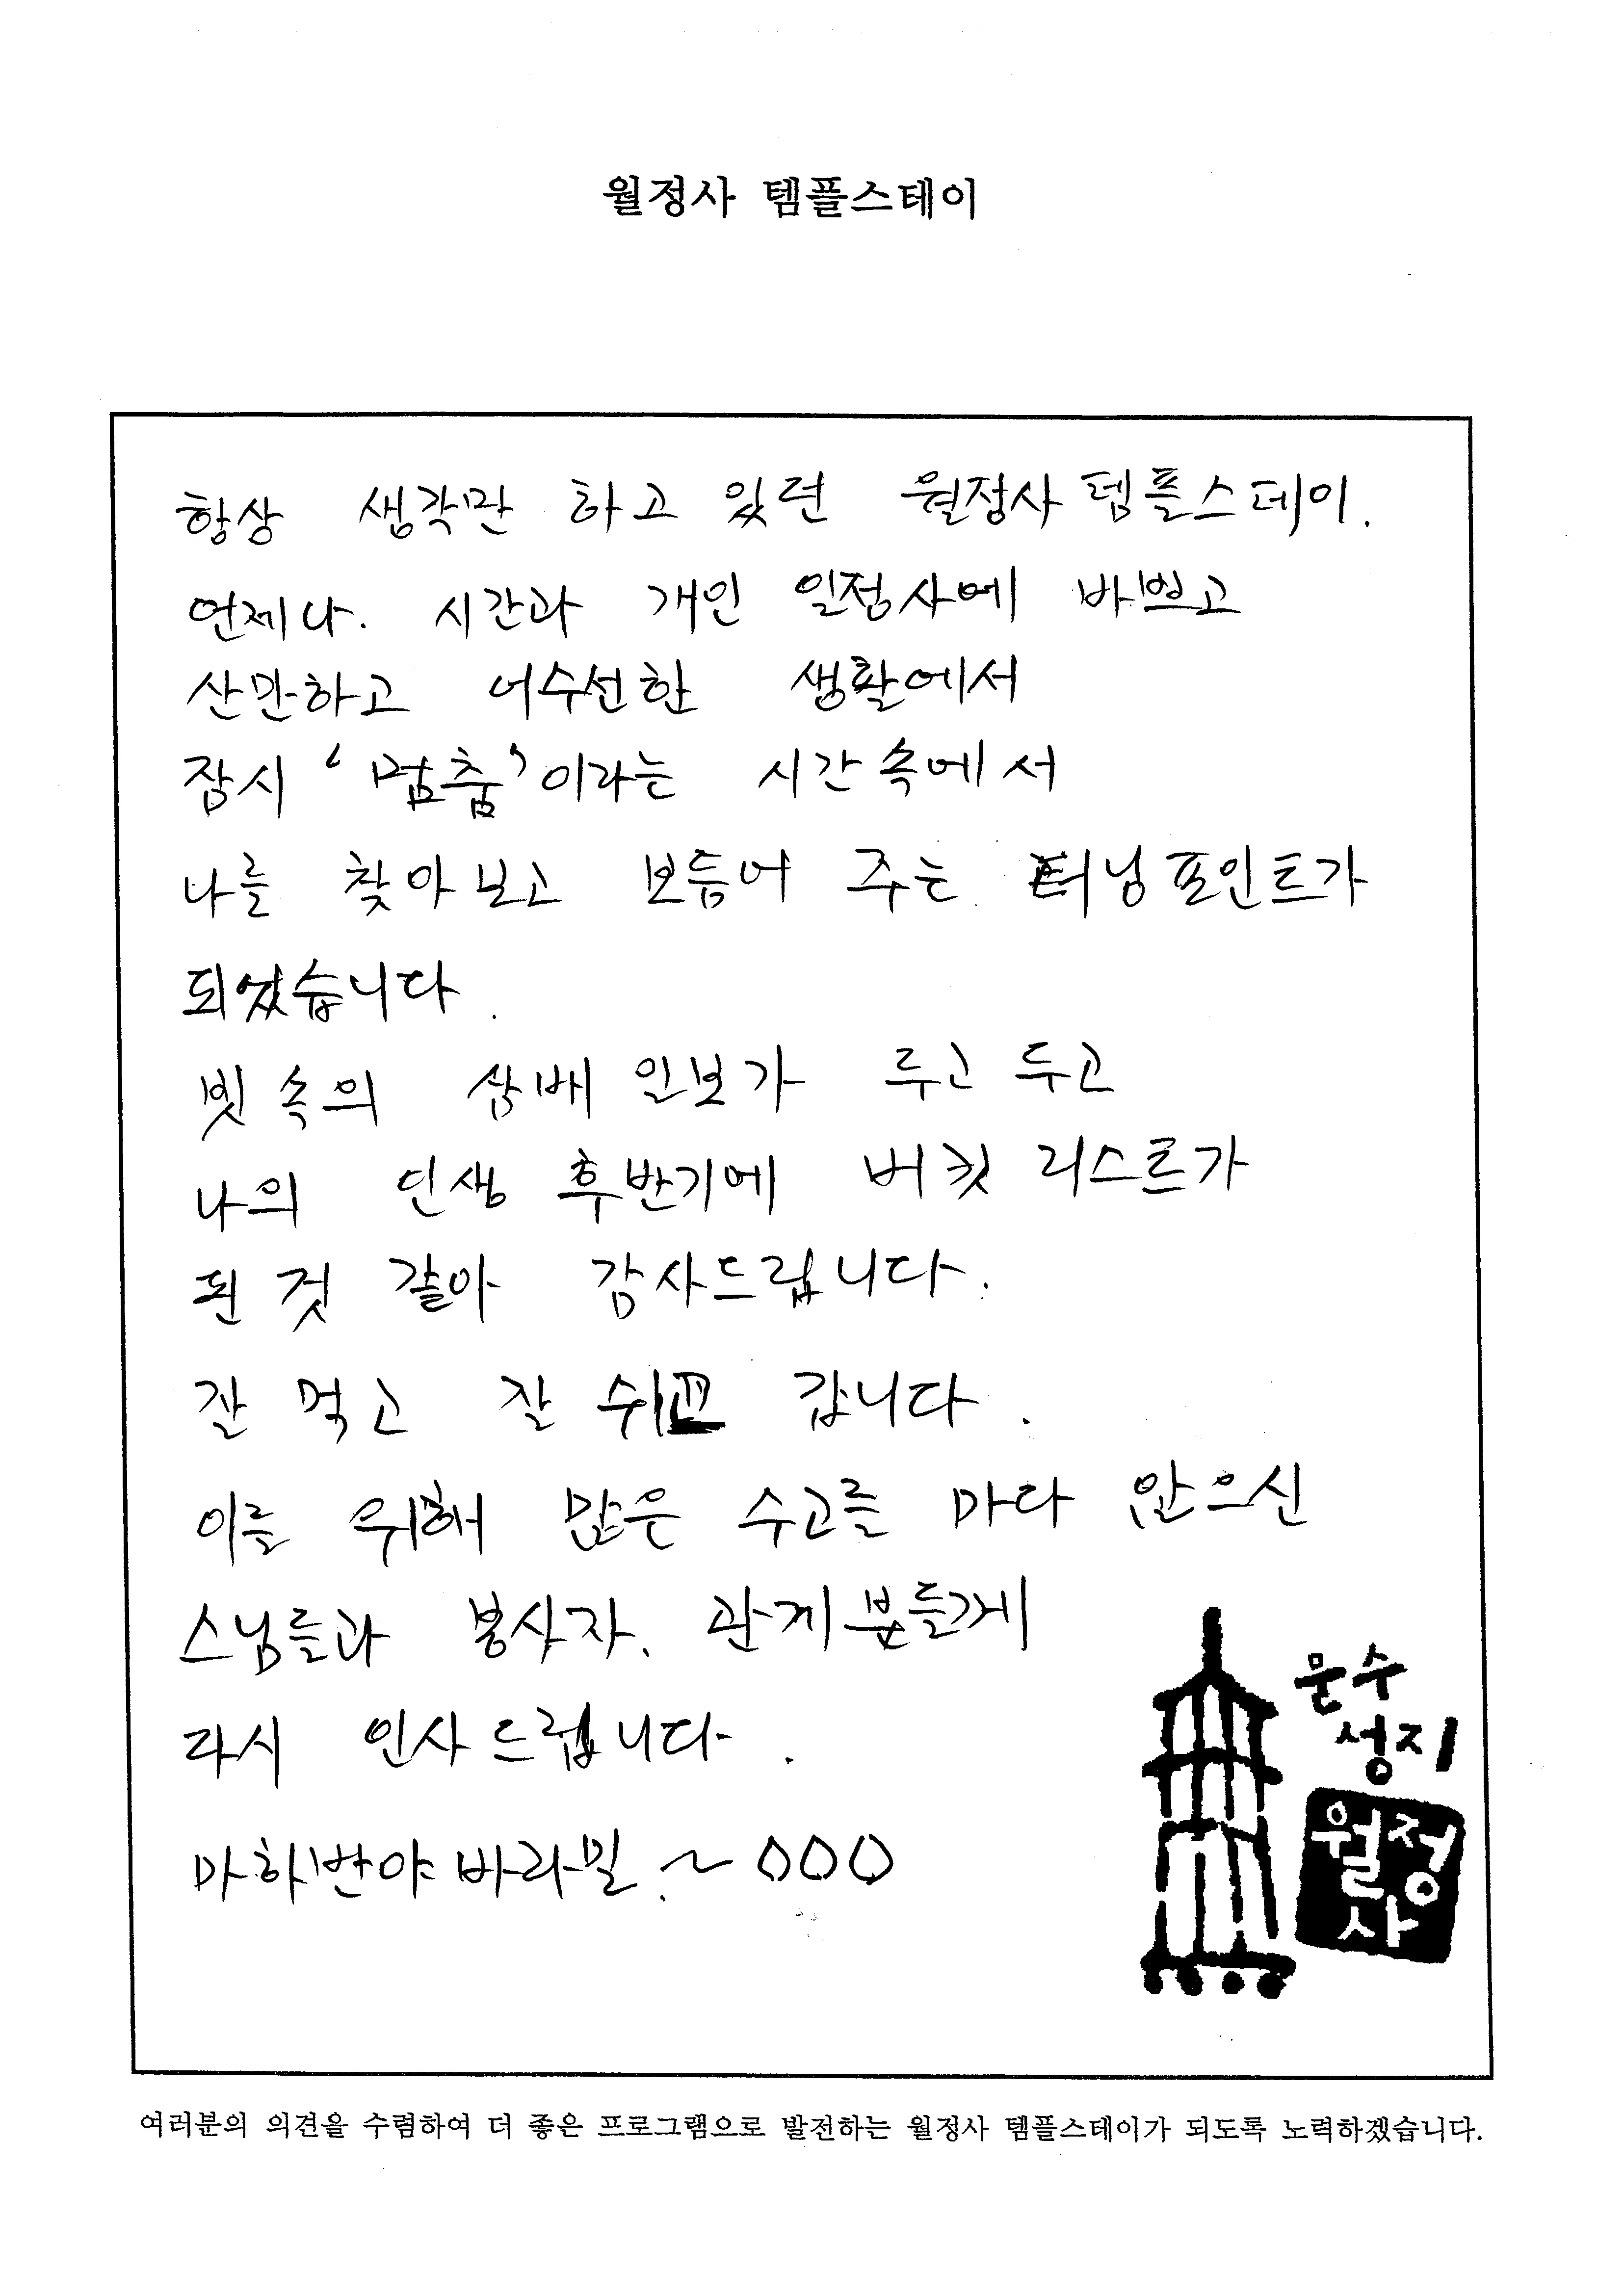 월정사 템플스테이
항상 생각만 하고 있던 월정사 템플스테이.
언제나. 시간과 개인 일정사에 바쁘고
산만하고 어수선한 생활에서
잠시 '멈춤'이라는 시간속에서
나를 찾아보고 보듬어 주는 터닝포인트가
되었습니다.
빗속의 삼배일보가 두고두고
나의 인생 후반기에 버킷 리스트가
된 것 같아 감사드립니다.
잘 먹고 잘 쉬고 갑니다.
이를 위해 많은 수고를 마다 않으신
스님들과 봉사자. 관계분들께
다시 인사드립니다.
마하반야바라밀.~ 000
문수
성지
월정
사
여러분의 의견을 수렴하여 더 좋은 프로그램으로 발전하는 월정사 템플스테이가 되도록 노력하겠습니다.